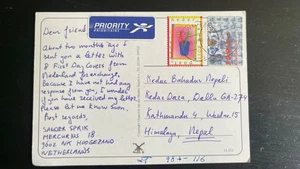 PRIORITY
PRIORITAIRE
Dear friend,
About two months ago I
sent you a letter with
8 First Day Covers from
Nederland
Because I have not had any
response from you, I wonder
if you have received my letter.
Please let me know soon.
Best regards,
SANDER SPRIK
MERCURIUS 18
9602 NK HOOGEZAND
NETHERLANDS
Kedar Bahadur Nepali
Kedar Darza, Dallu GA-274
Kathmandu 4, Wadno. 15
Himalaya, Nepal